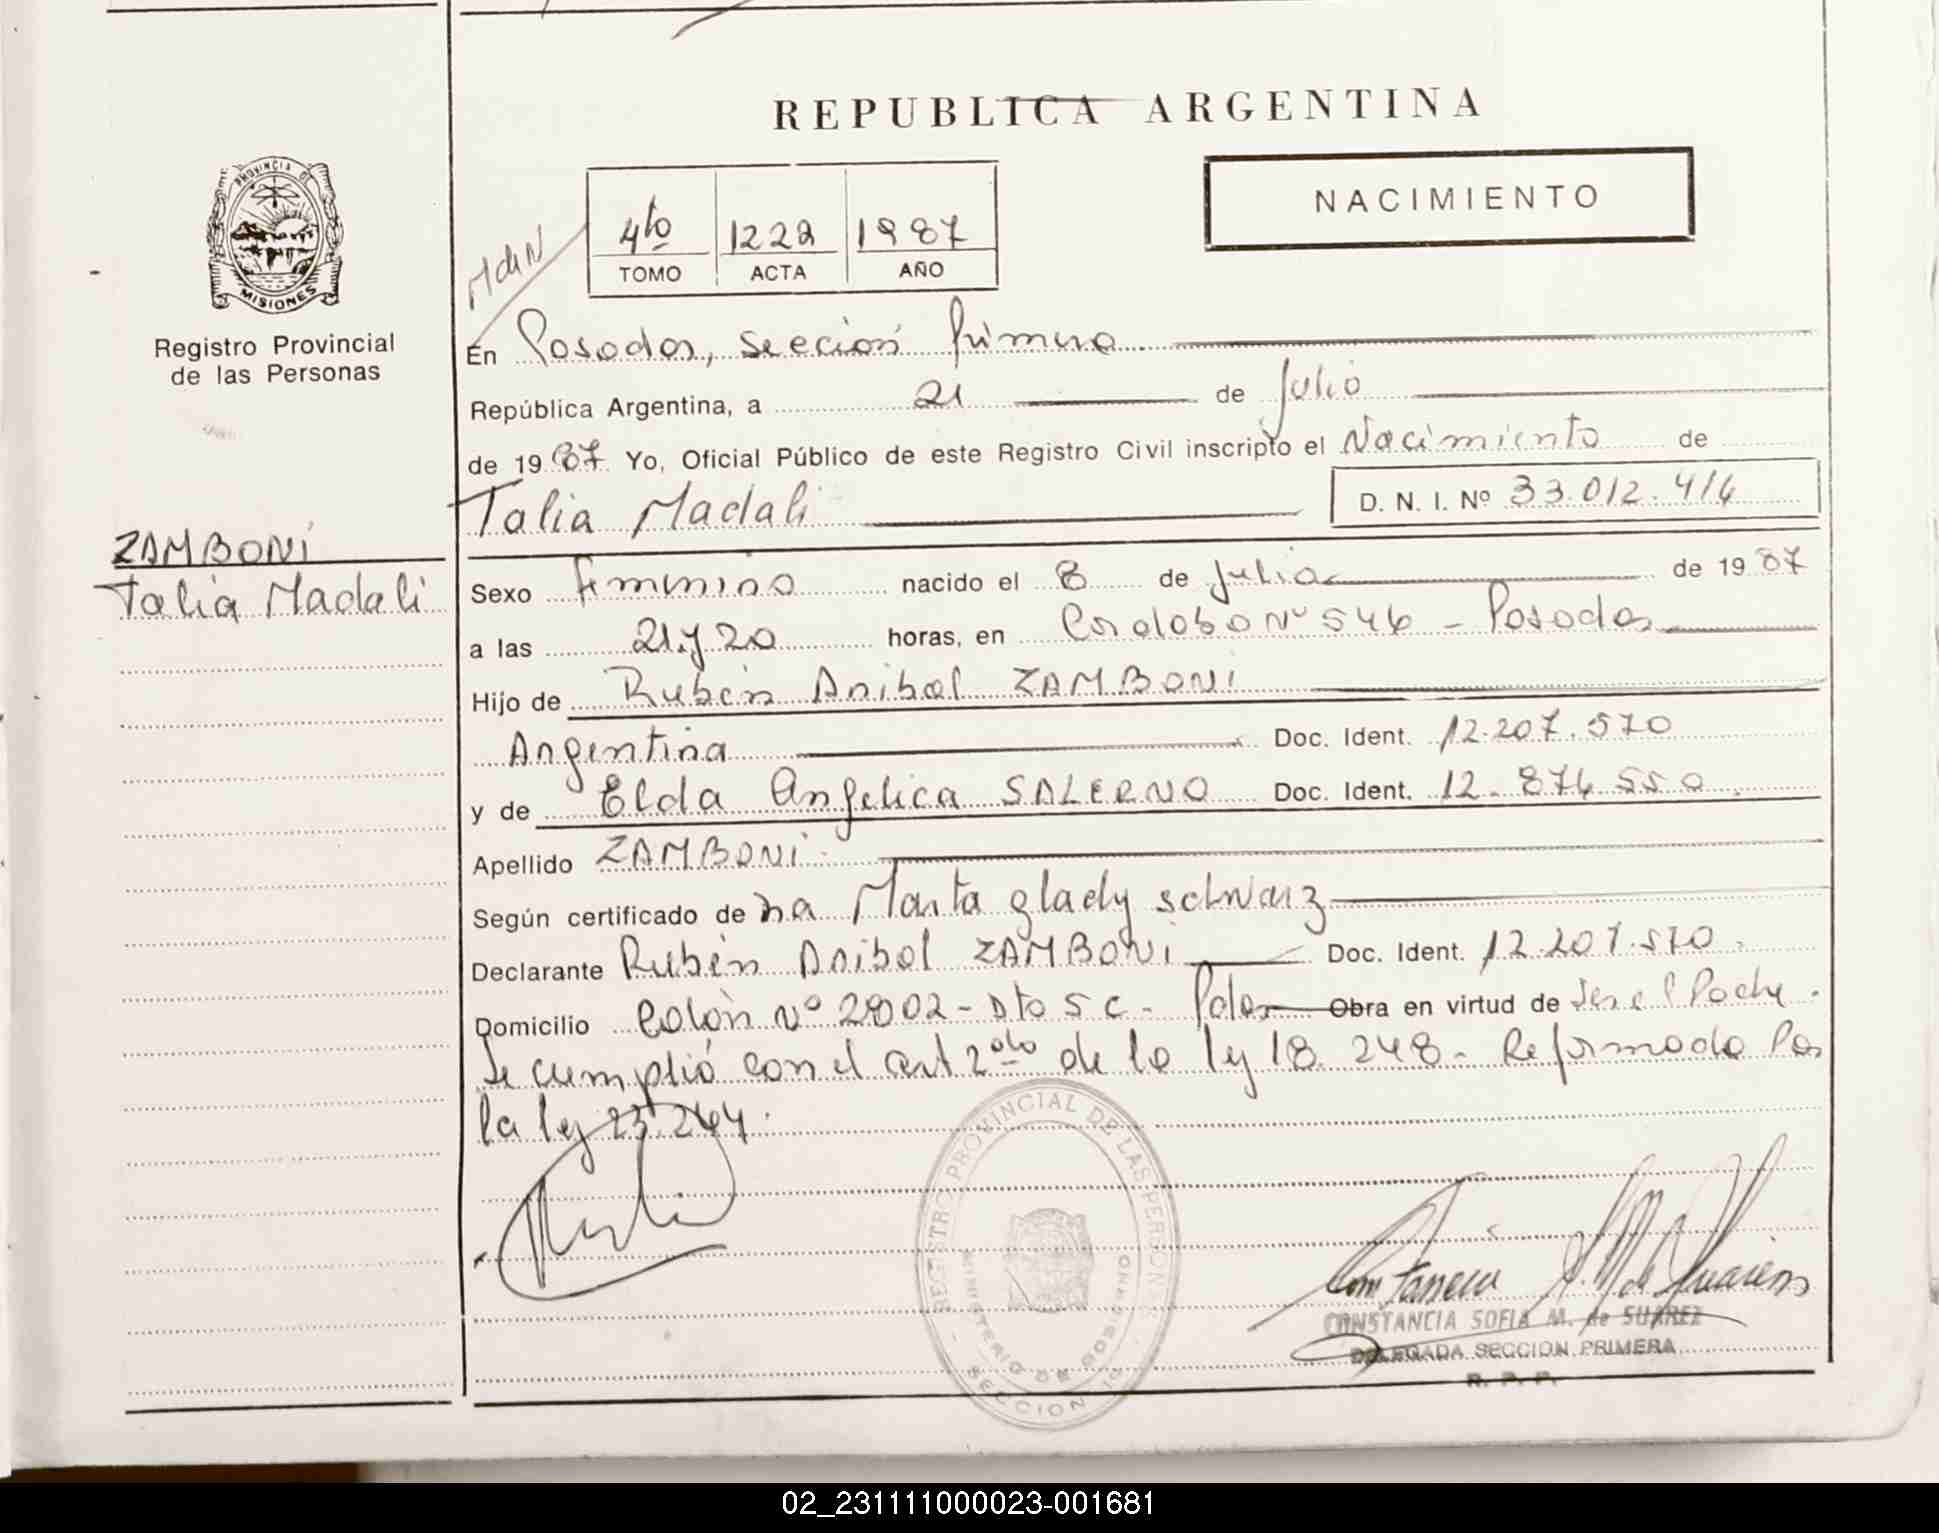 REPUBLICA ARGENTINA
PROVINCIA DE
MISIONES
Registro Provincial
de las Personas
NACIMIENTO
4to 1222 1987
TOMO ACTA AÑO
En Posadas, sección Primera
República Argentina, a 21 de Julio
de 1987 Yo, Oficial Público de este Registro Civil inscripto el Nacimiento de
Talia Madali D. N. I. Nº 33.012.414
ZAMBONI
Talia Madali
Sexo femenino nacido el 8 de Julio de 1987
a las 21 y 20 horas, en Cordoba Nº 546 - Posadas
Hijo de Rubén Anibal ZAMBONI
Argentina Doc. Ident. 12.207.570
y de Elda Angelica SALERNO Doc. Ident. 12.874.550
Apellido ZAMBONI
Según certificado de Marta Glady Schwarz
Declarante Rubén Anibal ZAMBONI Doc. Ident. 12.207.570
Domicilio Colón Nº 2802 - Dto 5 C - Pdas Obra en virtud de Ser el Padre.
Se cumplió con el art 2do de la ley 18.248 - Reformada Por
la ley 23.264.
REGISTRO PROVINCIAL DE LAS PERSONAS
MINISTERIO DE GOBIERNO
SECCION 1a
CONSTANCIA SOFIA M. de SUAREZ
DELEGADA SECCION PRIMERA
R. P. P.
02_231111000023-001681